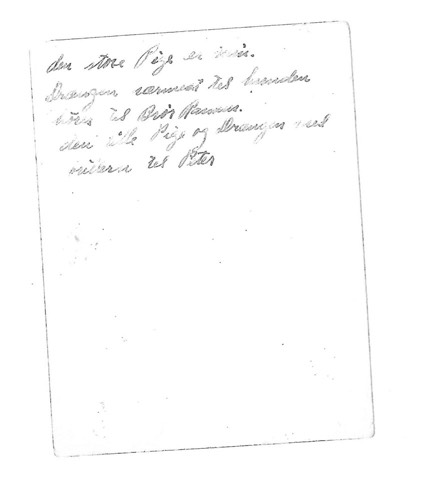 den store Pige er min.
Drængen nærmest til hunden
hører til Bror Rasmus.
den lille Pige og Drængen med
til Peter